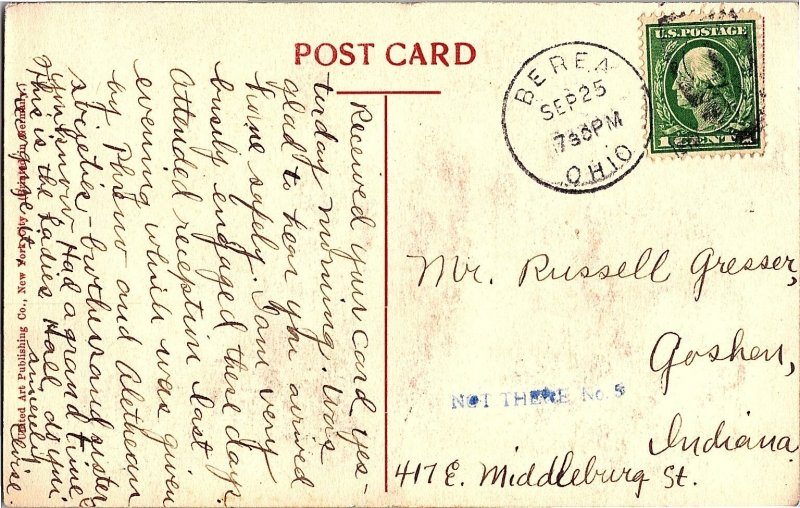 POST CARD
BEREA
SEP 25
730PM
OHIO
U.S. POSTAGE
1 CENT 1
Received your card yes-
terday morning. Was
glad to hear you arrived
home safely. I am very
busily engaged these days.
Attended reception last
evening which was given
by Phreno and Alethean
societies - brother and sister
you know. Had a grand time.
This is the Ladies Hall, do you
recognize it.
Sincerely
Mr. Russell Gresser,
Goshen,
Indiana
417 E. Middleburg St.
NOT THERE No. 5
Art Publishing Co., New York
Germany